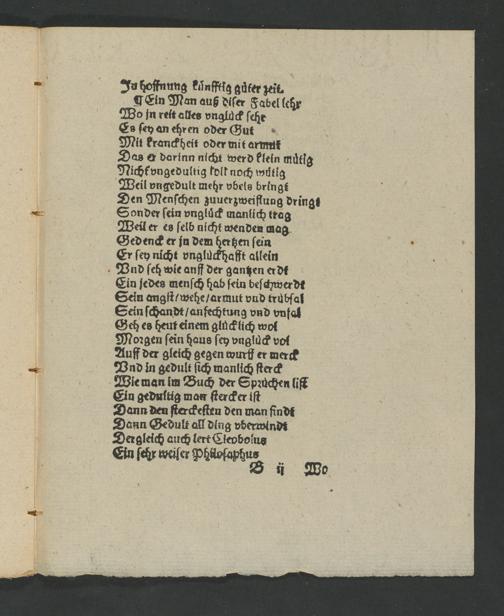 In hoffnung künfftig gůter zeit.
¶ Ein Man auß diser Fabel lehr
Wo jn reit alles vnglück sehr
Es sey an ehren oder Gut
Mit kranckheit oder mit armut
Das er darinn nicht werd klein mütig
Nicht vngedultig toll noch wütig
Weil vngedult mehr vbels bringt
Den Menschen zuuerzweiflung dringt
Sonder sein vnglück manlich trag
Weil er es selb nicht wenden mag
Gedenck er in dem hertzen sein
Er sey nicht vnglückhafft allein
Vnd seh wie auff der gantzen erdt
Ein jedes mensch hab sein beschwerdt
Sein angst/wehe/armut vnd trübsal
Sein schandt/anfechtung vnd vnfal
Geh es heut einem glücklich wol
Morgen sein haus sey vnglück vol
Auff der gleich gegen wurff er merck
Vnd in gedult sich manlich sterck
Wie man im Buch der Sprüchen list
Ein gedultig man stercker ist
Dann den sterckesten den man findt
Dann Gedult all ding vberwindt
Dergleich auch lert Cleobolus
Ein sehr weiser Philosaphus
B ij Wo